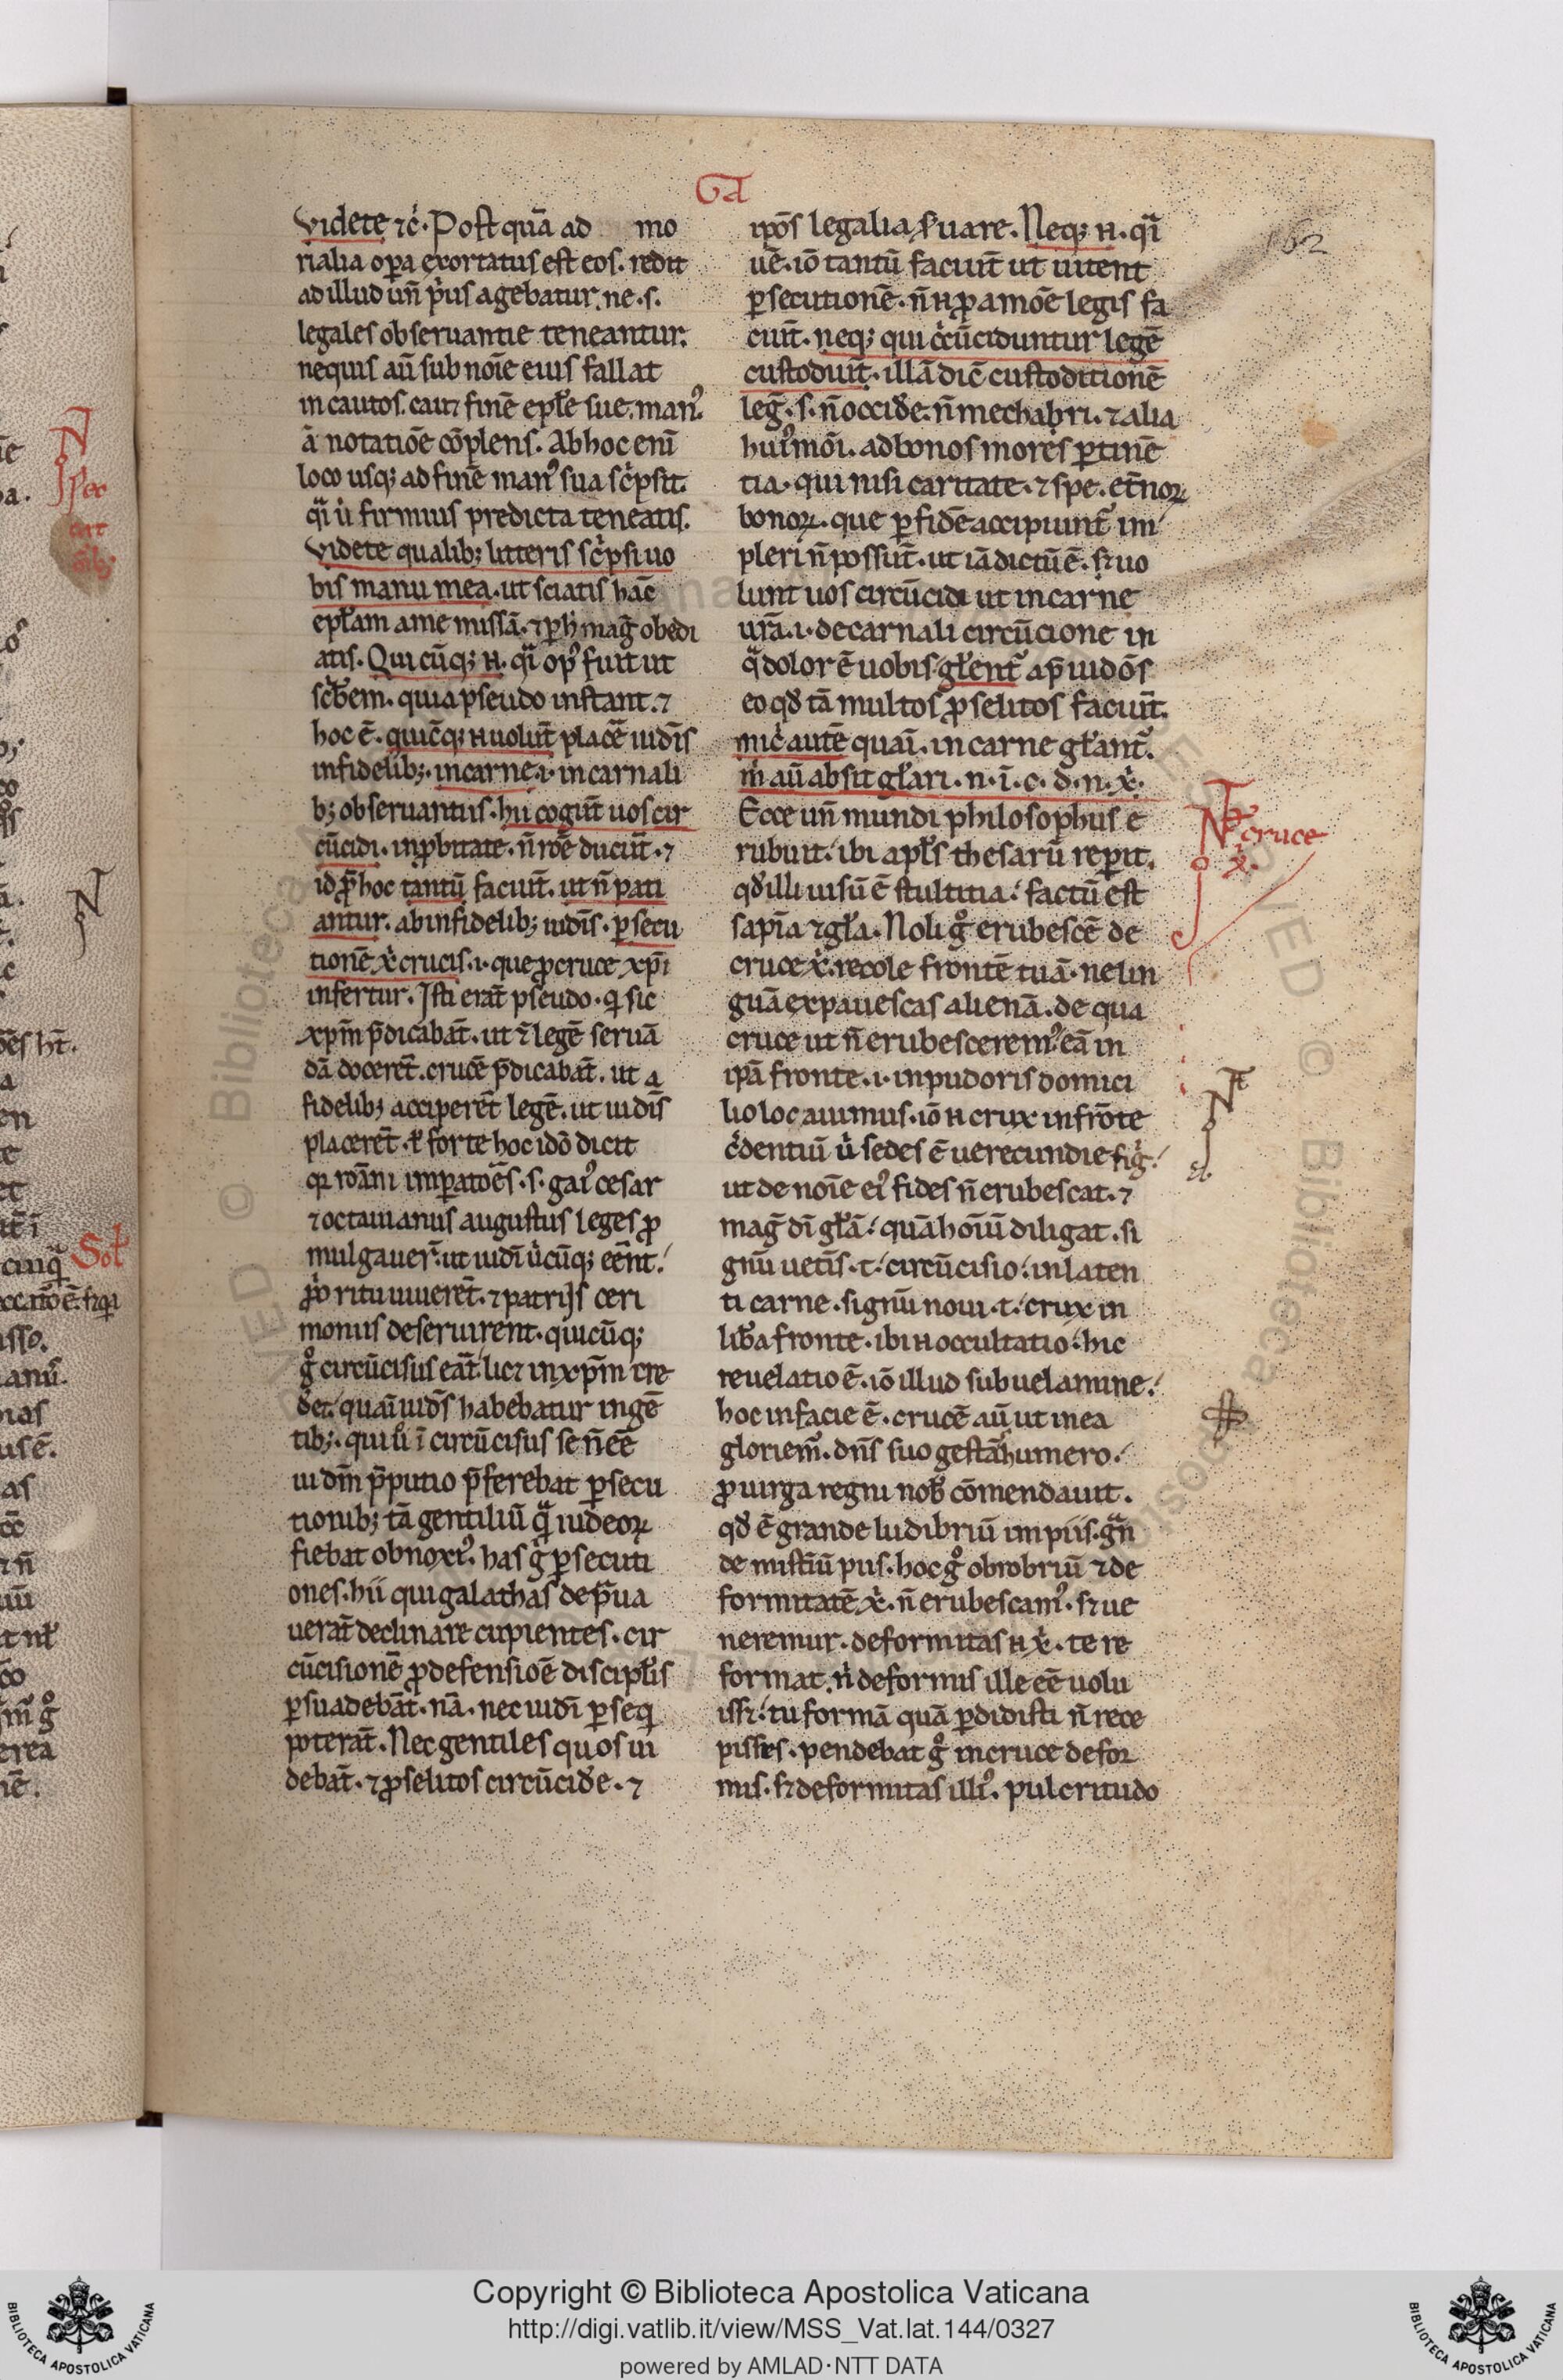 Ga
162
Videte ⁊c̾. Post quā ad mo
rialia oꝑa exortatus est eos. redit
ad illud un̄ p̾us agebatur. ne .s.
legales obseruantie teneantur.
nequis aū sub noīe eius fallat
in cautos. cauꝫ finē epłe sue. manꝰ
ā notatiōe cōplens. Ab hoc enī
loco usqꝫ ad finē manꝰ sua sc̾psit.
qͣ u̾ firmius predicta teneatis.
Videte qualibꝫ litteris sc̾psi uo
bis manu mea. ut sciatis hāc
epłam a me missā. ⁊ ꝑ h̾ mag̾ obedi
atis. Qui cūqꝫ n̾. qͣ opꝰ fuit ut
sc̾bem. quia pseudo instant. ⁊
hoc ē. quicūqꝫ n̾ uolūt placē̄ iudīs
infidelibꝫ. in carne .i. in carnali
bꝫ obseruantiis. hii cogūt uos cir
cūcidi. inꝓbitate. n̄ rōe ducūt. ⁊
id ꝓ̄ hoc tantū faciūt. ut n̄ pati
antur. ab infidelibꝫ iudīs. ꝑsecu
tionē x̾ crucis .i. que ꝓ cruce xp̄i
infertur. Isti erāt pseudo. q̾ sic
xp̄m p̄dicabāt. ut ⁊ legē seruā
dā docerēt. crucē p̄dicabāt. ut a
fidelibꝫ acciperēt legē. ut iudīs
placerēt. ł forte hoc idō dicit
qꝛ romāni imꝑatoēs .s. gaiꝰ cesar
⁊ octauianus augustus leges ꝓ
mulgauer̄. ut iudī u̾cūqꝫ eēnt.
ꝓp̾o ritu uiuerēt. ⁊ patriis ceri
moniis deseruirent. quicūqꝫ
gͦ circūcisus eāt. licꝫ in xp̄m cre
det. quaī iudīs habebatur in gē
tibꝫ. qui u̾ ī circūcisus se n̄ eē
iudīm p̄putio p̄ferebat ꝑsecu
tionibꝫ tā gentiliū qͣ iudeoꝝ
fiebat obnoxiꝰ. has g̾ ꝑsecuti
ones. hii qui galathas dep̄ua
uerāt declinare cupientes. cir
cūcisionē ꝓ defensiōe discipłis
ꝑsuadebāt. nā. nec iudī ꝑseq̾
poterāt. Nec gentiles quos ui
debāt. ⁊ ꝓselitos circūcid̾e. ⁊
ipōs legalia s̾uare. Neqꝫ n̾. qͣ
uē. iō tantū faciūt ut uitent
ꝑsecutionē. n̄ n̾ ꝓ amōe legis fa
ciūt. neqꝫ qui c̾cūciduntur legē
custodiūt. illā dic̄ custoditionē
leg̾. s. n̄ occid̾e. n̄ mechabri. ⁊ alia
huiꝰmōi. ad bonos mores ꝑtinē
tia. qui nisi caritate. ⁊ spe. et̄noꝝ
bonoꝝ. que ꝑ fidē accipiunt̾ im
pleri n̄ possūt. ut iā dictū ē. sꝫ uo
lunt uos circūcidi ut in carne
urā .i. de carnali circūcione in
qͣ dolor ē uobis głent̾ ap̄ iudōs
eo qd̾ tā multos ꝓselitos faciūt.
mic̾ autē quaī. in carne głant̾.
m̾ aū absit głari. n. ī. c. d. n. x̾.
Ecce un̄ mundi philosophus e
rubuit. ibi apłs thesarū reꝑit.
qd̾ illi uisū ē stultitia. factū est
sapīa ⁊ gła. Noli gͦ erubescē de
cruce x̾. recole frontē tuā. ne lin
guā expauescas alienā. de qua
cruce ut n̄ erubesceremꝰ eā in
ipā fronte .i. in pudoris domici
lio locauimus. iō n̾ crux in frōte
c̾dentiū u̾ sedes ē uerecundie fig̾.
ut de noīe eiꝰ fides n̄ erubescat. ⁊
mag̾ dī głā. quā hoīū diligat. si
gnū uetīs .t. circūcisio. in laten
ti carne. signū noui .t. crux in
lib̾a fronte. ibi n̾ occultatio. hic
reuelatio ē. iō illud sub uelamine.
hoc in facie ē. crucē aū ut in ea
gloriem̾. dn̄s suo gestās humero.
ꝓ uirga regni nob̾ cōmendauit.
qd̾ ē grande ludibriū impiis. gͣn
de mist̾iū piis. hoc gͦ obrobriū ⁊ de
formitatē x̾. n̄ erubescamꝰ. sꝫ ue
neremur. deformitas n̾ x̾. te re
format. n̾ deformis ille eē uolu
issꝫ. tu formā quā ꝑdidisti n̄ rece
pisses. pendebat gͦ in cruce defor
mis. sꝫ deformitas illiꝰ. pulcritudo
N̄ cruce
x̾.
Copyright © Biblioteca Apostolica Vaticana
http://digi.vatlib.it/view/MSS_Vat.lat.144/0327
powered by AMLAD·NTT DATA
BIBLIOTECA APOSTOLICA VATICANA
BIBLIOTECA APOSTOLICA VATICANA